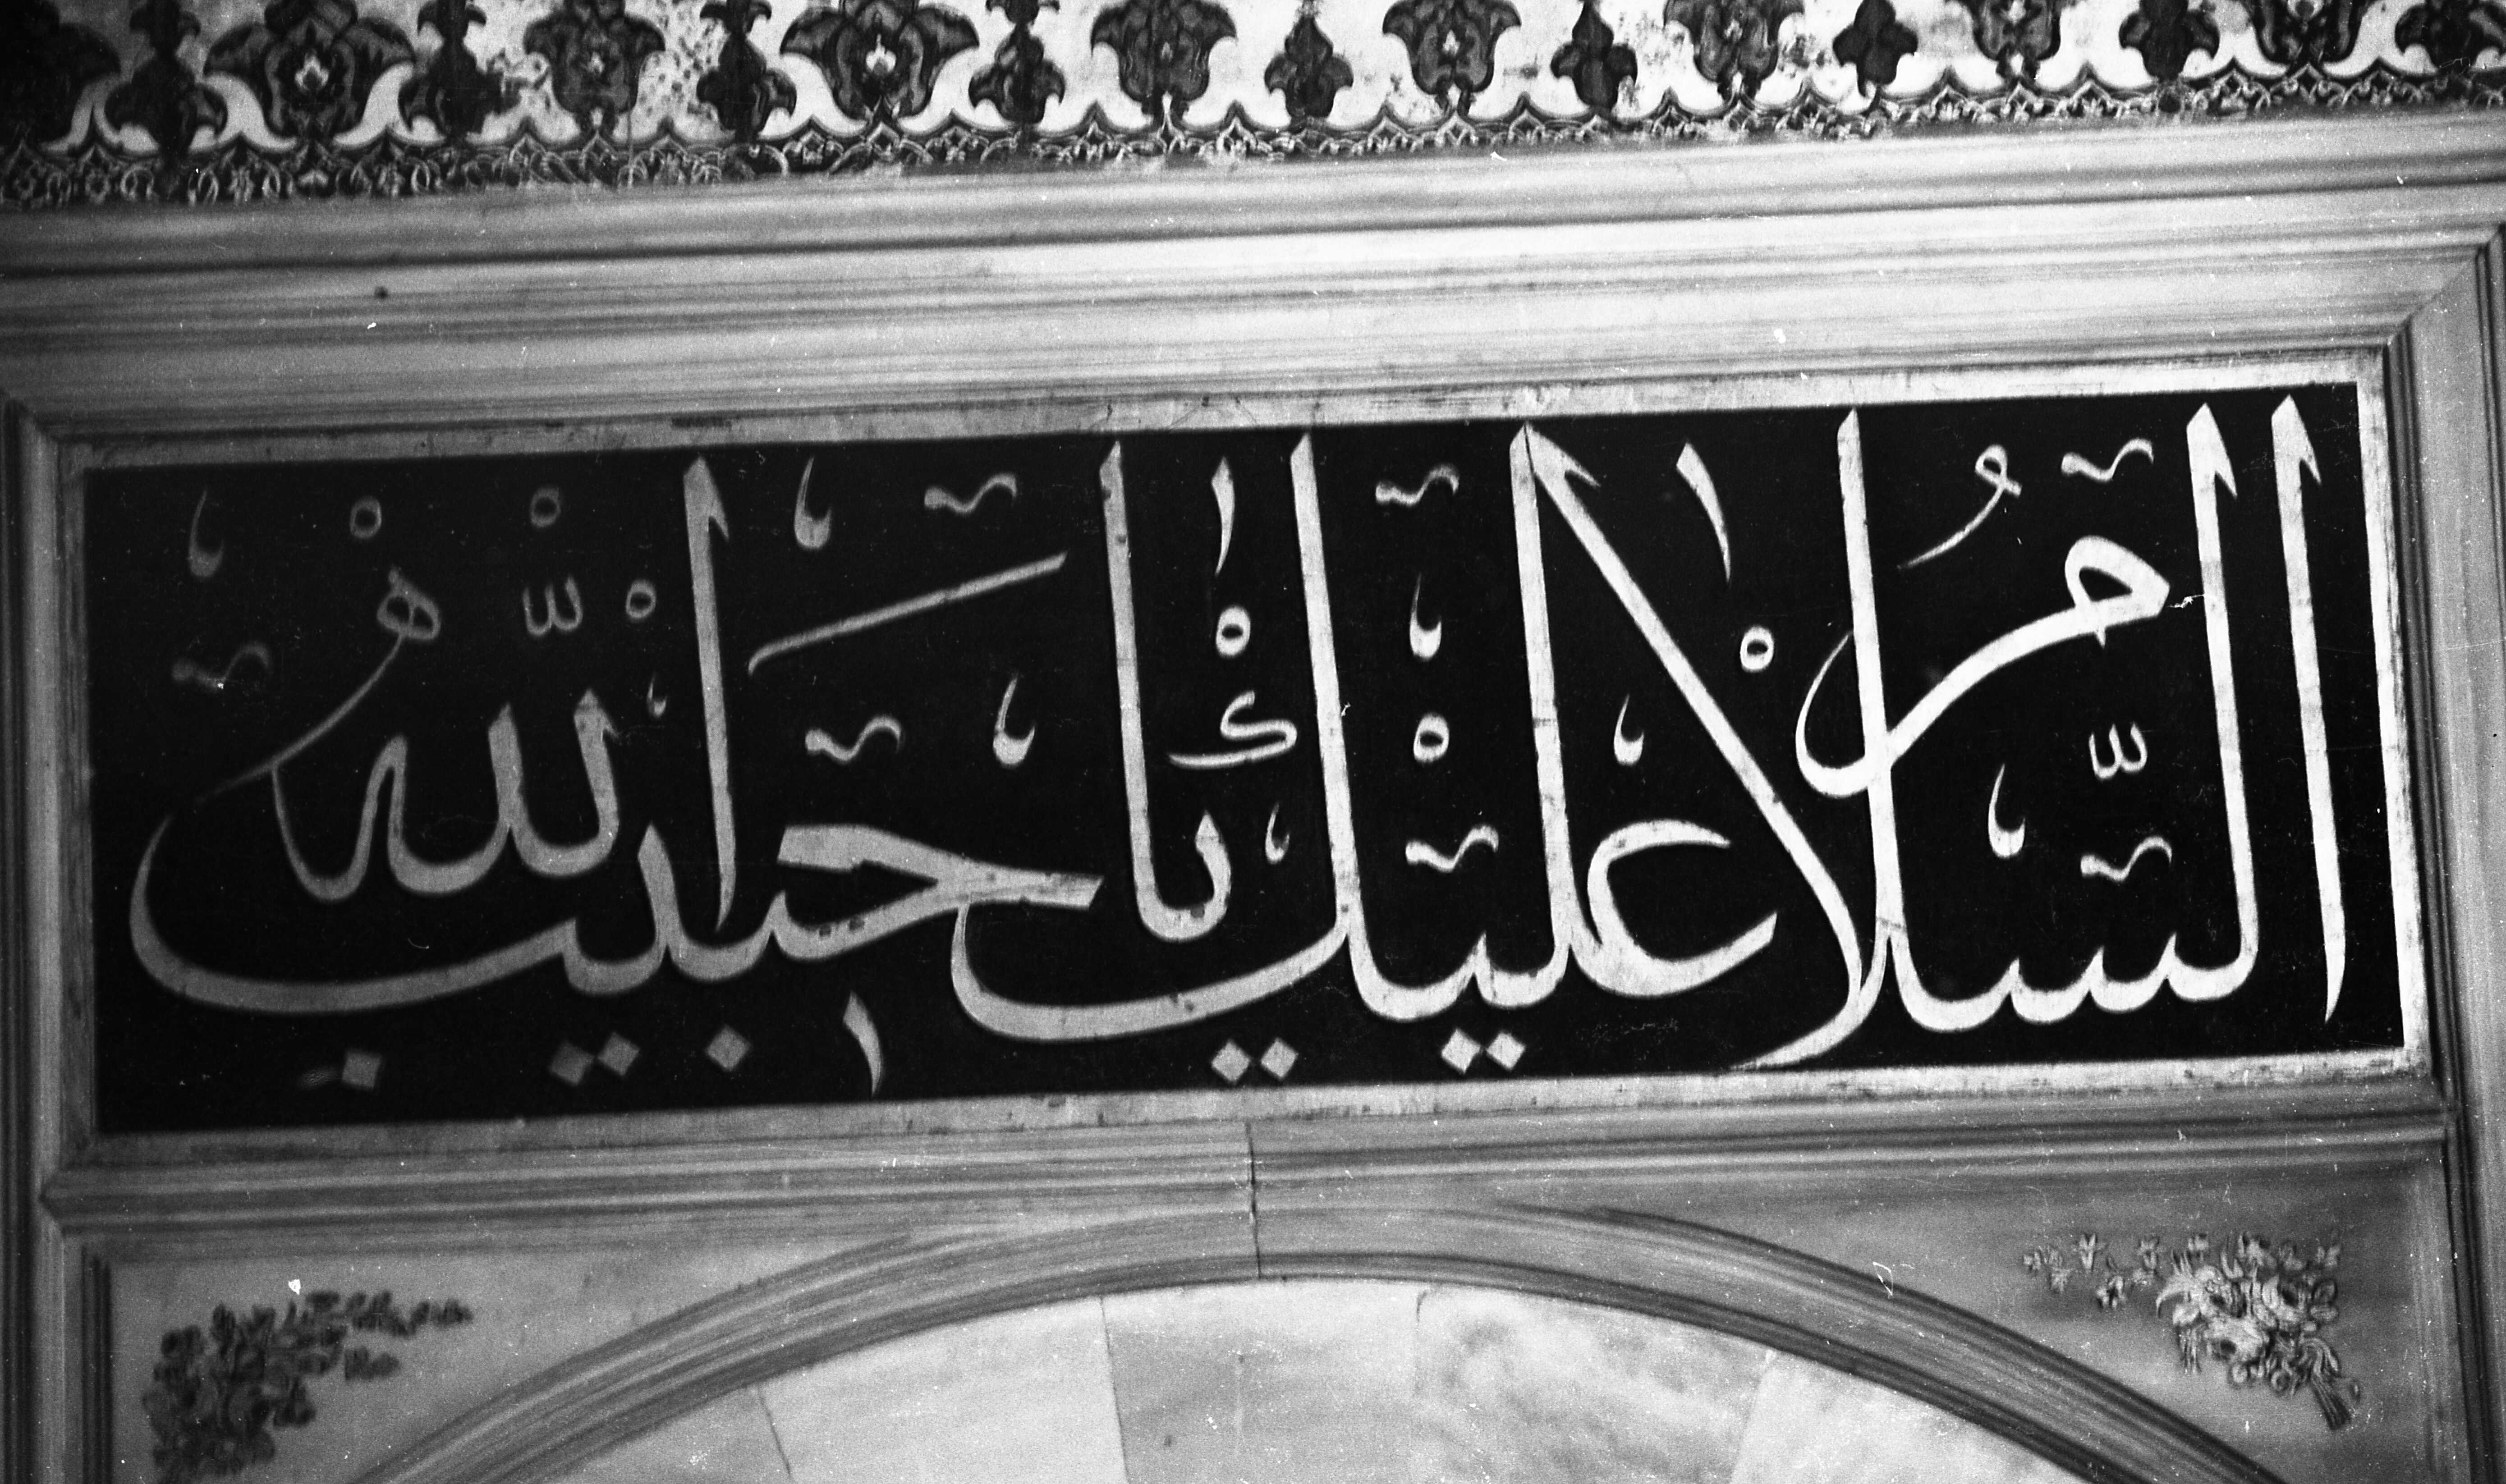 السلام عليك يا حبيب الله